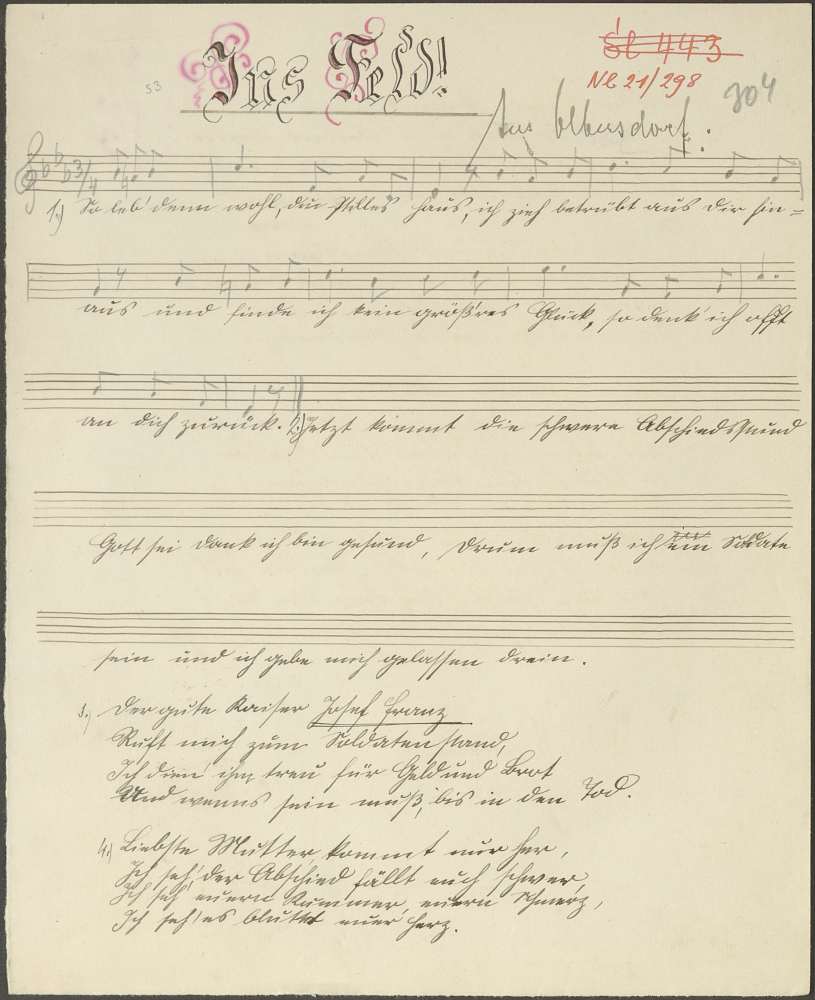 53
Ins Feld!
Sl 443
Nl. 21/298
304
Aus Olbersdorf:
3/4
1.) So leb' denn wohl, du stilles Haus, ich zieh betrübt aus dir hin=
aus und finde ich kein größ'res Glück, so denk' ich offt
an dich zurück. 2.) Jetzt kommt die schwere Abschiedsstund
Gott sei Dank ich bin gesund, drum muß ich ein Soldate
sein und ich gebe mich gelassen drein.
3.) Der gute Kaiser Josef Franz
Ruft mich zum Soldatenstand,
Ich dien' ihm treu für Geld und Brot
Und wenns sein muß, bis in den Tod.
4.) Liebste Mutter, kommt nur her,
Ich seh', der Abschied fällt euch schwer,
Ich seh' euern Kummer, euern Schmerz,
Ich seh' es blutet euer Herz.